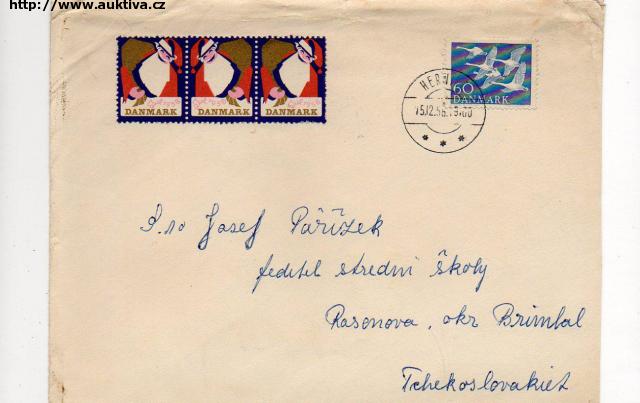 http://www.auktiva.cz
Jul 1956 Jul 1956 Jul 1956
DANMARK DANMARK DANMARK
60
DANMARK
HER
15.12.56.19-00
P.no Josef Pařízek
ředitel střední školy
Rasonova, okr Brimtal
Tchekoslovakiet